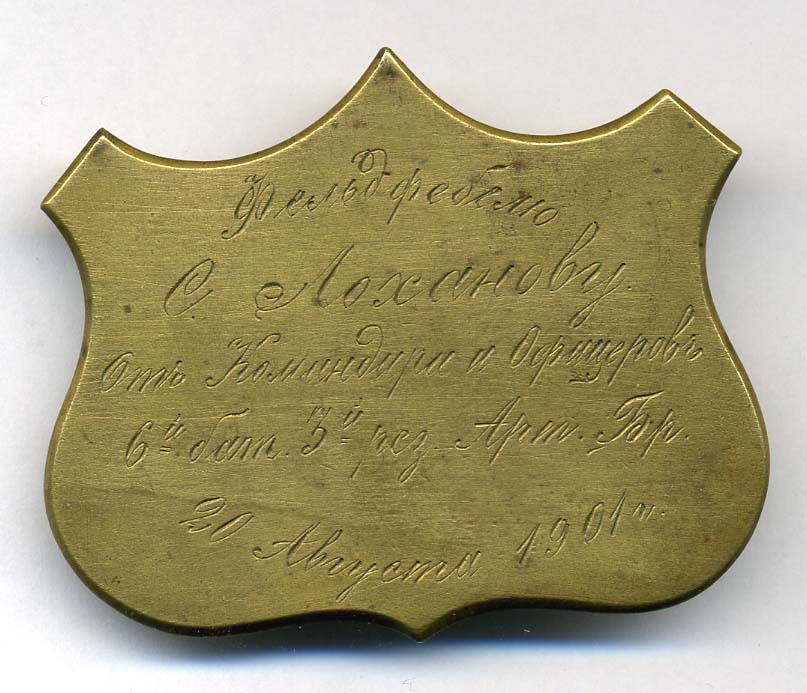 Фельдфебелю
С. Лоханову.
Отъ Командира и Офицеровъ
6й бат. 3й рез. Арт. Бр.
20 Августа 1901 г.